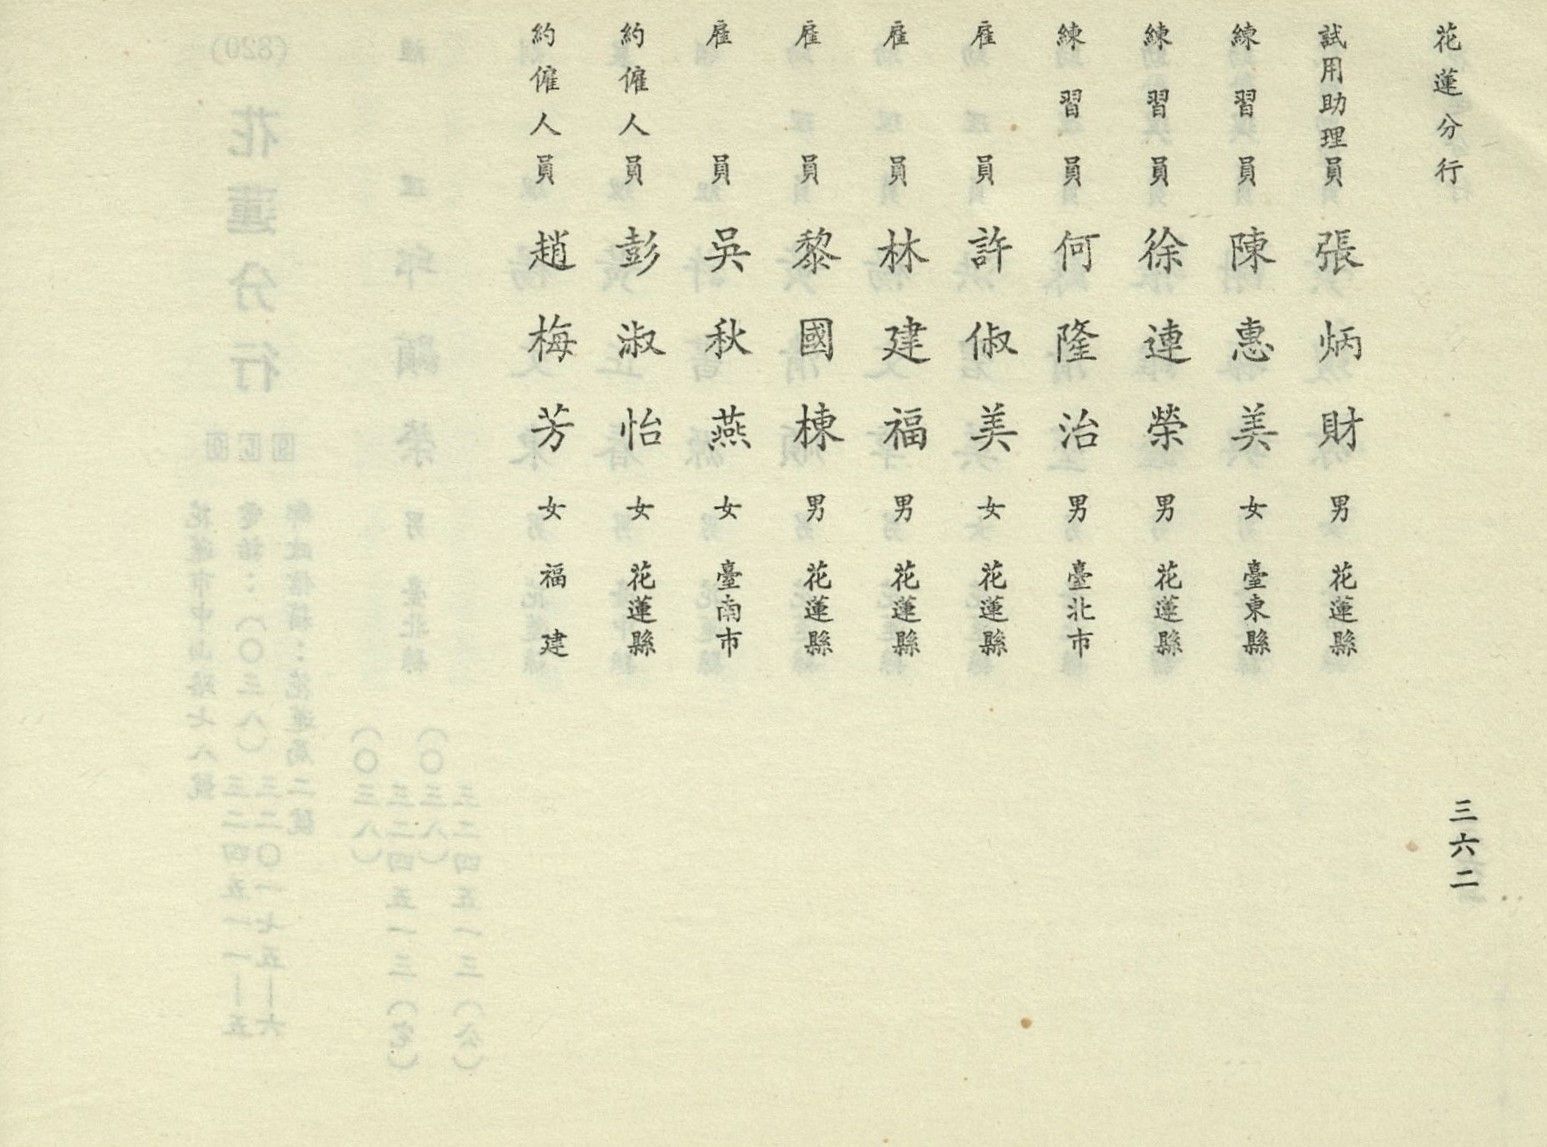 花蓮分行
試用助理員 張炳財 男 花蓮縣
練習員 陳惠美 女 臺東縣
練習員 徐連榮 男 花蓮縣
練習員 何隆治 男 臺北市
雇員 許俶美 女 花蓮縣
雇員 林建福 男 花蓮縣
雇員 黎國棟 男 花蓮縣
雇員 吳秋燕 女 臺南市
約僱人員 彭淑怡 女 花蓮縣
約僱人員 趙梅芳 女 福建
三六二